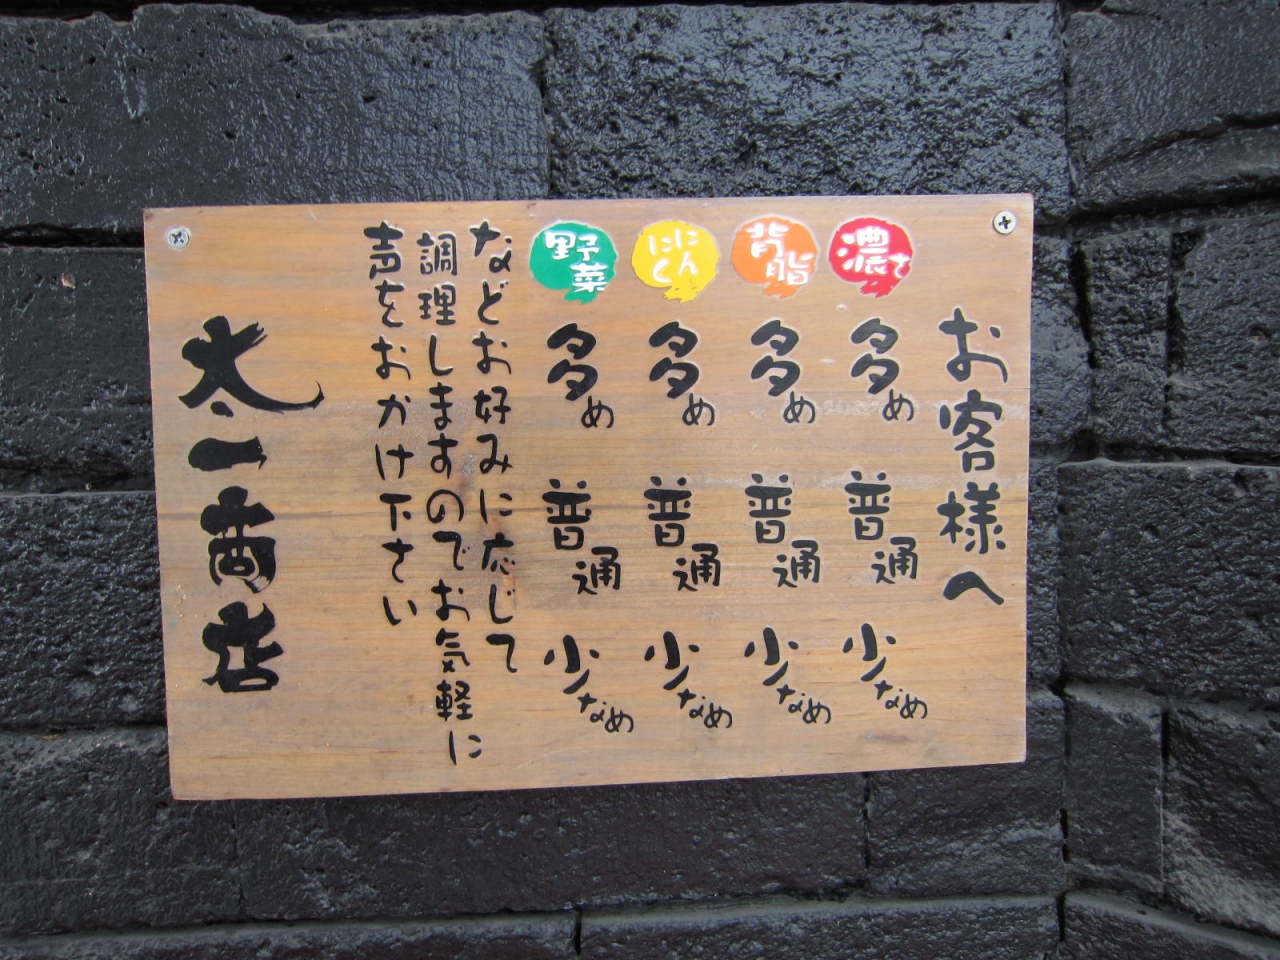 お客様へ
濃さ 多め 普通 少なめ
背脂 多め 普通 少なめ
にんにく 多め 普通 少なめ
野菜 多め 普通 少なめ
などお好みに応じて
調理しますのでお気軽に
声をおかけ下さい
太一商店